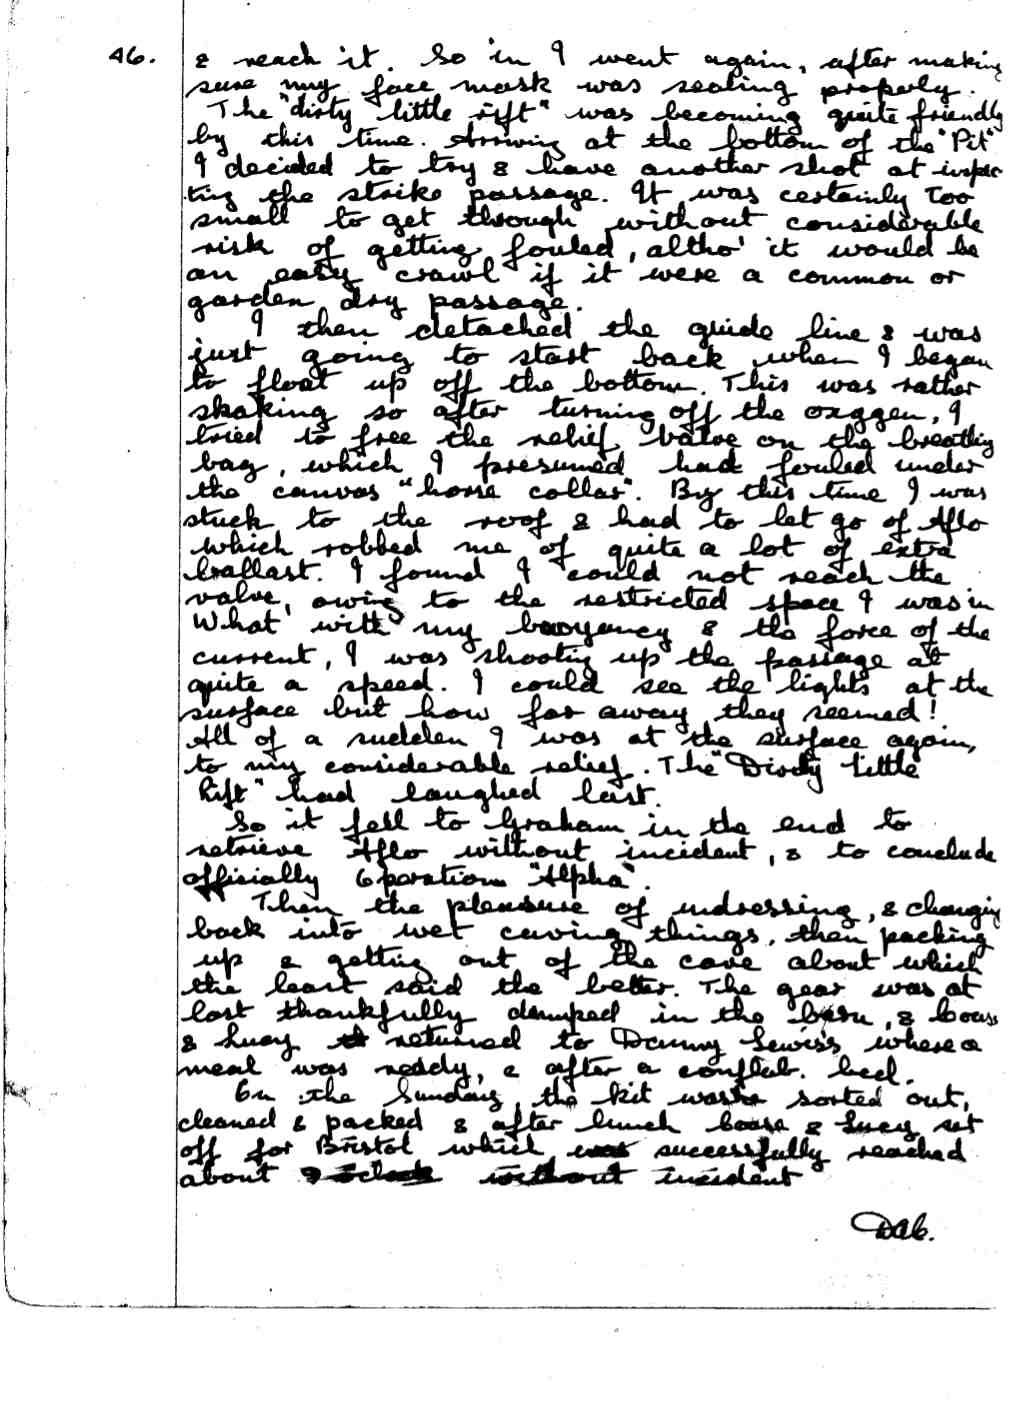 46.
& reach it. So in I went again, after making
sure my face mask was sealing properly.
The "dirty little rift" was becoming quite friendly
by this time. Arriving at the bottom of the "Pit"
I decided to try & have another shot at inspec
ting the strike passage. It was certainly too
small to get through without considerable
risk of getting fouled, altho' it would be
an easy crawl if it were a common or
garden dry passage.
I then detached the guide line & was
just going to start back when I began
to float up off the bottom. This was rather
shaking so after turning off the oxygen, I
tried to free the relief valve on the breathing
bag, which I presumed had fouled under
the canvas "horse collar". By this time I was
stuck to the roof & had to let go of Aflo
which robbed me of quite a lot of extra
ballast. I found I could not reach the
valve, owing to the restricted space I was in
What with my buoyancy & the force of the
current, I was shooting up the passage at
quite a speed. I could see the lights at the
surface but how far away they seemed!
All of a sudden I was at the surface again,
to my considerable relief. The "Dirty Little
Rift" had laughed last.
So it fell to Graham in the end to
retrieve Aflo without incident, & to conclude
officially Operation "Alpha".
Then the pleasure of undressing, & changing
back into wet caving things, then packing
up & getting out of the cave about which
the least said the better. The gear was at
last thankfully dumped in the barn, &
& returned to Danny Lewis's where a
meal was ready, & after a conflab. bed.
On the Sunday, the kit was sorted out,
cleaned & packed & after lunch & set
off for Bristol which successfully reached
about without incident